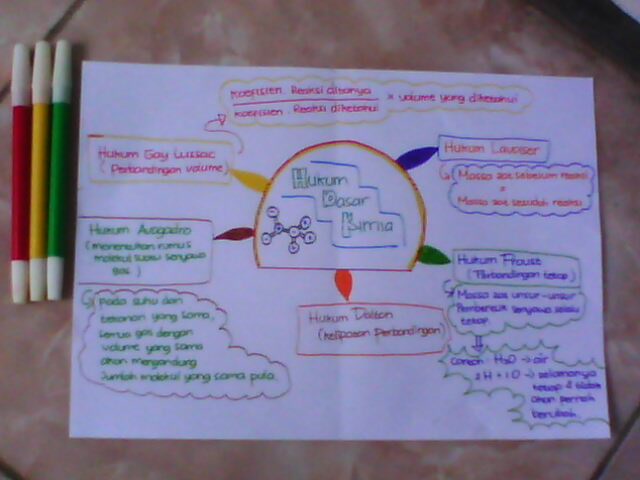 Koefisien. Reaksi ditanya
Koefisien. Reaksi diketahui
× volume yang diketahui
Hukum Gay Lussac
(Perbandingan volume)
Hukum Lavoiser
Massa zat sebelum reaksi
=
Massa zat sesudah reaksi
Hukum
Dasar
Kimia
Hukum Avogadro
(menentukan rumus
molekul suatu senyawa
gas)
Pada suhu dan
tekanan yang sama,
semua gas dengan
volume yang sama
akan mengandung
Jumlah molekul yang sama pula
Hukum Dalton
(kelipatan Perbandingan)
Hukum Proust
(Perbandingan tetap)
Massa zat unsur-unsur
Pembentuk senyawa selalu
tetap
Contoh H2O → air
2H + 1O → selamanya
tetap & tidak
akan pernah
berubah.